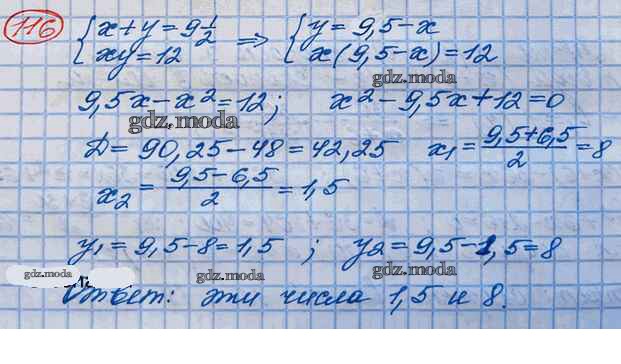 116 { x+y=9 1/2 ⇒ { y=9,5-x
xy=12 x(9,5-x)=12
gdz.moda
9,5x-x²=12; x²-9,5x+12=0
gdz.moda
D=90,25-48=42,25 x₁=(9,5+6,5)/2=8
x₂=(9,5-6,5)/2=1,5
y₁=9,5-8=1,5 ; y₂=9,5-1,5=8
gdz.moda gdz.moda gdz.moda
Ответ: эти числа 1,5 и 8.
gdz.moda